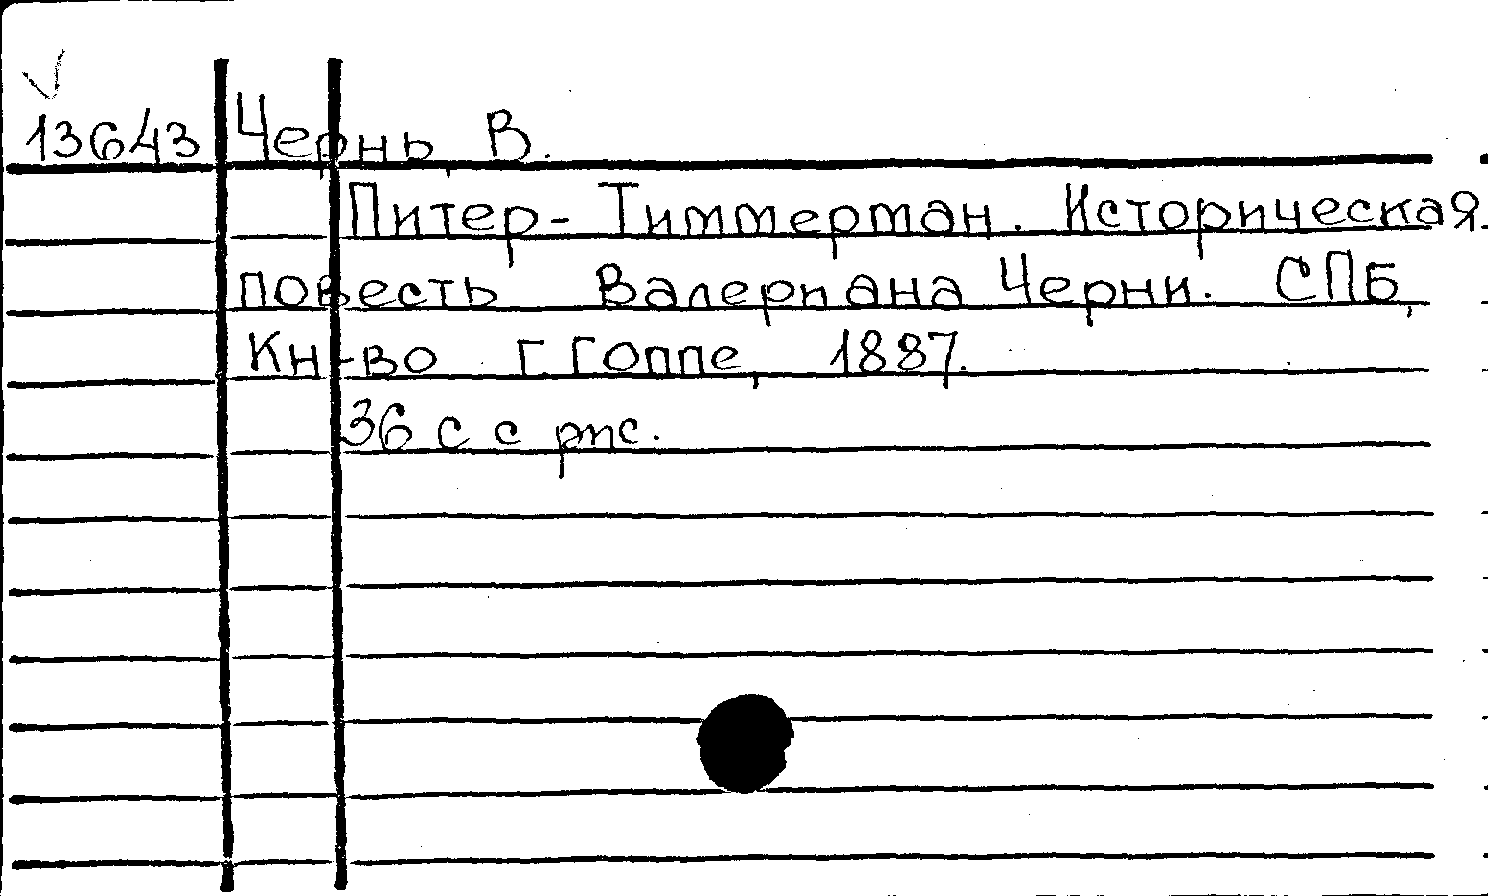 13643 Чернь, В.
Питер-Тиммерман. Историческая
повесть Валериана Черни. СПБ,
Кн-во Г. Гоппе, 1887.
36 с с рис.